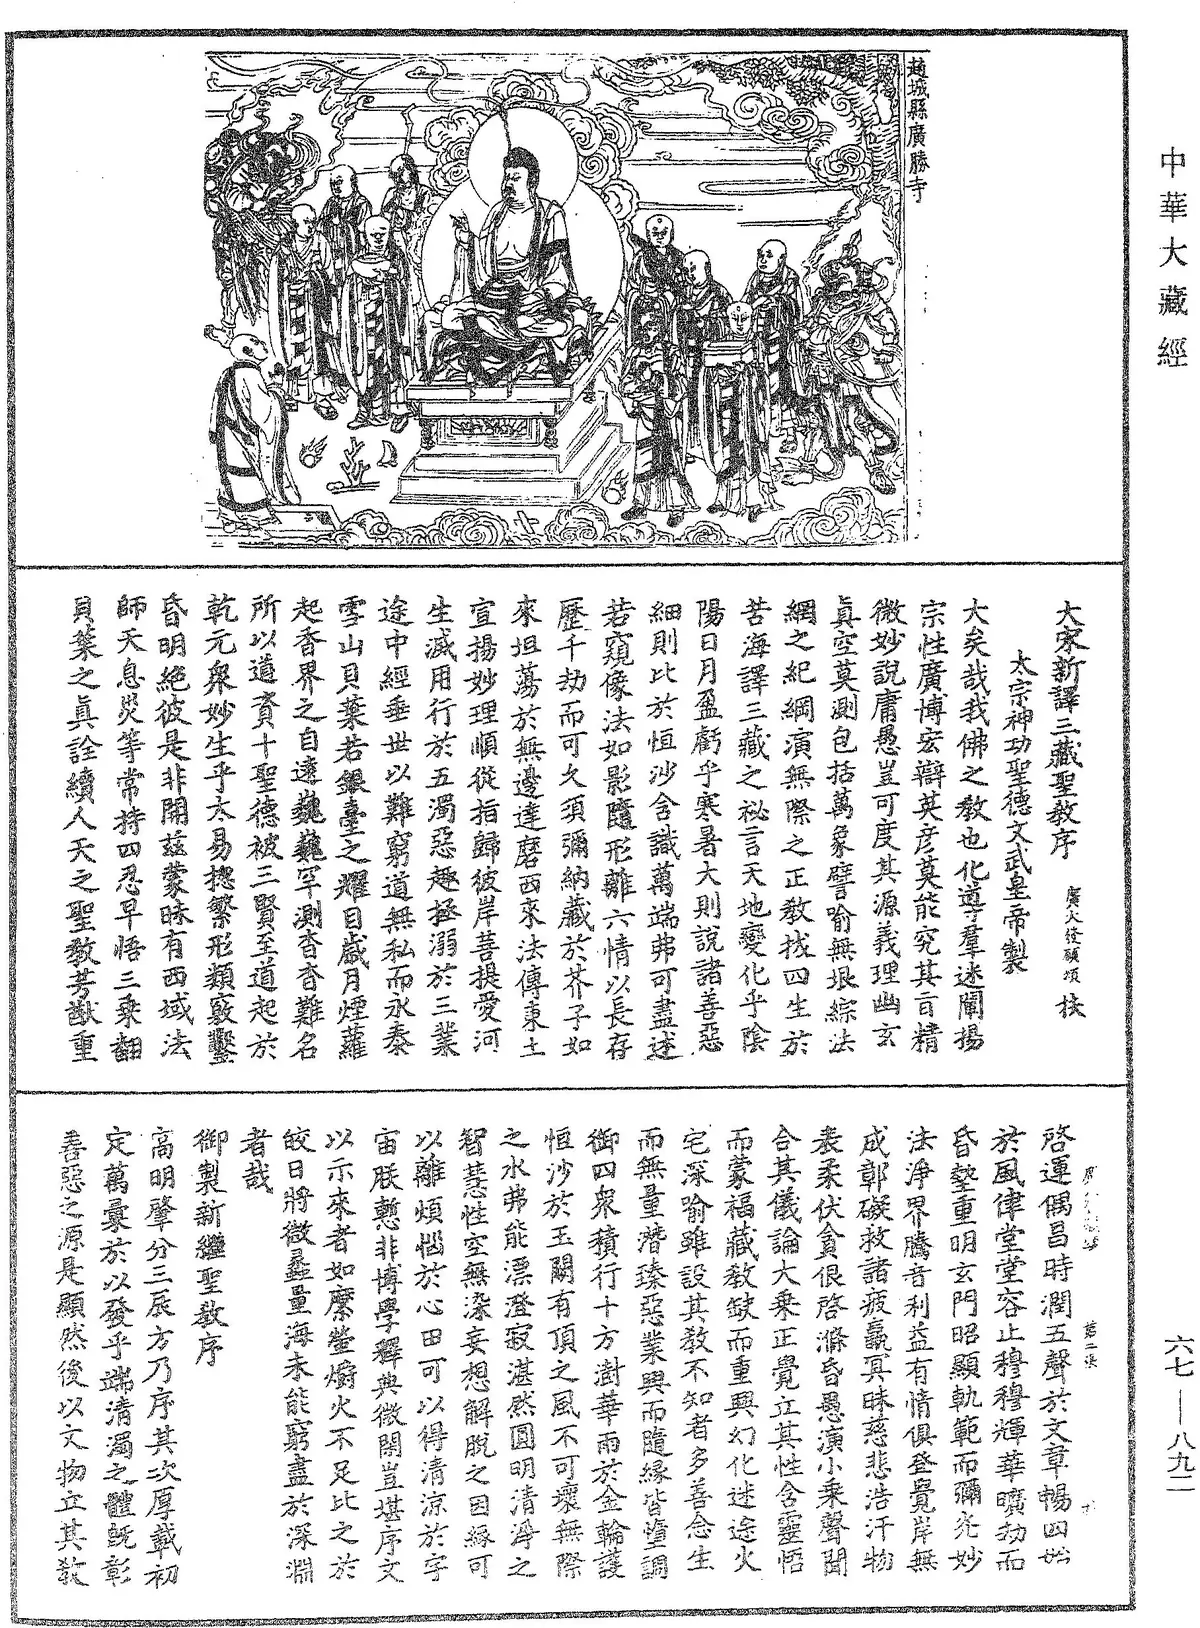 中華大藏經
趙城縣廣勝寺
大宋新譯三藏聖教序
太宗神功聖德文武皇帝製
大矣哉我佛之教也化導羣迷闡揚
宗性廣博宏辯英彦莫能究其旨精
微妙說庸愚豈可度其源義理幽玄
真空莫測包括萬象譬喻無垠綜法
網之紀綱演無際之正教拔四生於
苦海譯三藏之祕言天地變化乎陰
陽日月盈虧乎寒暑大則說諸善惡
細則比於恒沙含識萬端弗可盡述
若窺像法如影隨形離六情以長存
歷千劫而可久須彌納藏於芥子如
來坦蕩於無邊達磨西來法傳東土
宣揚妙理順從指歸彼岸菩提愛河
生滅用行於五濁惡趣極溺於三業
途中經垂世以難窮道無私而永泰
雪山貝葉若銀臺之耀目歲月煙蘿
起香界之自遠巍巍罕測杳杳難名
所以道資十聖德被三賢至道起於
乾元衆妙生乎太易揔繁形類竅鑿
昏明絶彼是非開茲蒙昧有西域法
師天息災等常持四忍早悟三乘翻
貝葉之真詮續人天之聖教芳猷重
啓運偶昌時潤五聲於文章暢四始
於風律堂堂容止穆穆輝華曠劫而
昏墊重明玄門昭顯軌範而彌光妙
法淨界騰音利益有情俱登覺岸無
成鄣礙救諸疲羸冥昧慈悲浩汗物
表柔伏貪很啓滌昏愚演小乘聲聞
合其儀論大乘正覺立其性含靈悟
而蒙福藏教缺而重興幻化迷途火
宅深喻雖設其教不知者多善念生
而無量潛臻惡業興而隨緣皆墮調
御四衆積行十方澍華雨於金輪護
恒沙於玉闕有頂之風不可壞無際
之水弗能漂澄寂湛然圓明清淨之
智慧性空無染妄想解脫之因緣可
以離煩惱於心田可以得清涼於宇
宙朕慙非博學釋典微閑豈堪序文
以示來者如縻螢爝火不足比之於
皎日將微蠡量海未能窮盡於深淵
者哉
御製新繼聖教序
高明肇分三辰方乃序其次厚載初
定萬彙於以發乎端清濁之體旣彰
善惡之源是顯然後以文物立其教
第二張
六七—八九二